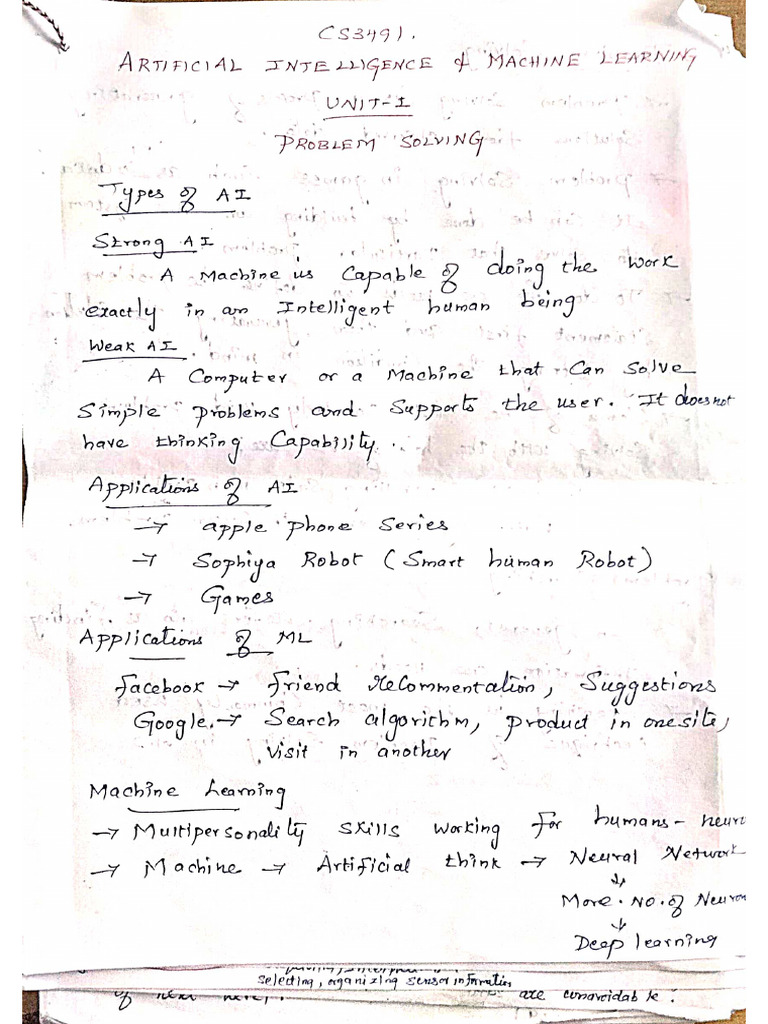 CS3491.
ARTIFICIAL INTELLIGENCE & MACHINE LEARNING
UNIT-I
PROBLEM SOLVING
Types of AI
Strong AI
A Machine is Capable of doing the work
exactly in an Intelligent human being
Weak AI.
A Computer or a Machine that Can Solve
Simple problems and Supports the user. It does not
have thinking Capability.
Applications of AI
→ apple phone Series
→ Sophiya Robot (Smart human Robot)
→ Games
Applications of ML
Facebook → Friend reCommentation, Suggestions
Google. → Search algorithm, product in one site,
visit in another
Machine Learning
→ Multipersonality skills working for humans - neuro
→ Machine → Artificial think → Neural Network
↓
More. No. of Neuron
↓
Deep learning
selecting, organizing sensor information
of next
are